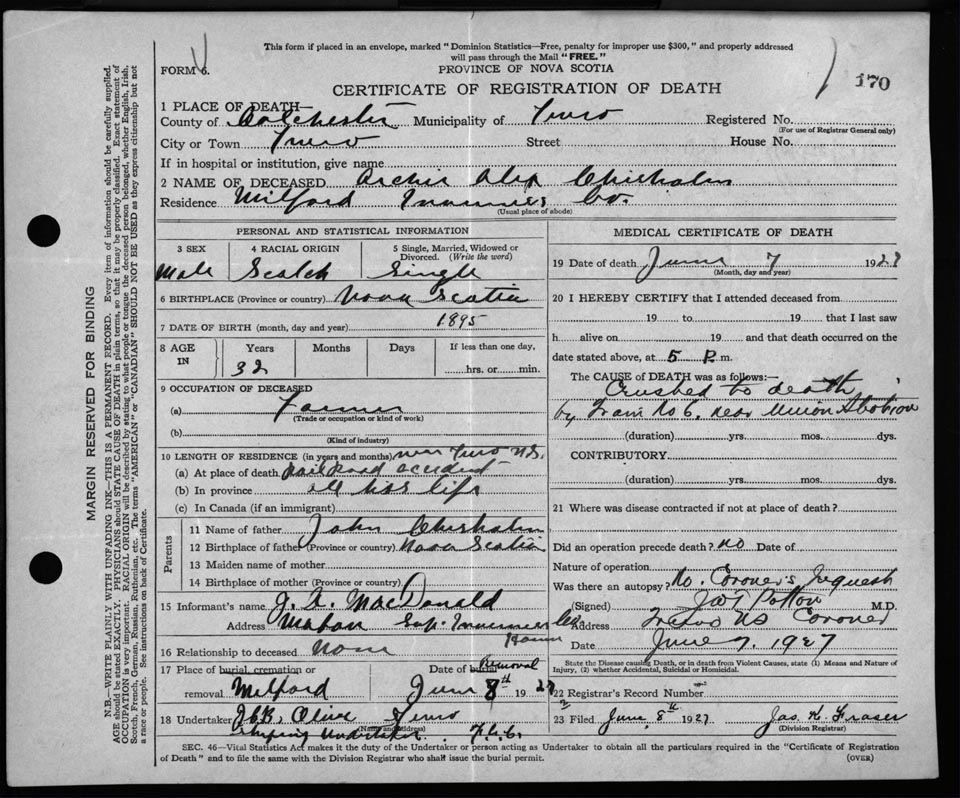 This form if placed in an envelope, marked "Dominion Statistics—Free, penalty for improper use $300," and properly addressed
will pass through the Mail "FREE."
FORM 6.
PROVINCE OF NOVA SCOTIA
170
CERTIFICATE OF REGISTRATION OF DEATH
1 PLACE OF DEATH—
County of Colchester Municipality of Truro Registered No.
(For use of Registrar General only)
City or Town Truro Street House No.
If in hospital or institution, give name
2 NAME OF DECEASED Archie Alex Chisholm
Residence Milford Inverness Co.
(Usual place of abode)
PERSONAL AND STATISTICAL INFORMATION
3 SEX 4 RACIAL ORIGIN 5 Single, Married, Widowed or Divorced. (Write the word)
Male Scotch Single
6 BIRTHPLACE (Province or country) Nova Scotia
7 DATE OF BIRTH (month, day and year) 1895
8 AGE IN Years Months Days If less than one day,
32 hrs. or min.
9 OCCUPATION OF DECEASED
(a) Farmer
(Trade or occupation or kind of work)
(b)
(Kind of industry)
10 LENGTH OF RESIDENCE (in years and months) near Truro N.S.
(a) At place of death railroad accident
(b) In province all his life
(c) In Canada (if an immigrant)
Parents
11 Name of father John Chisholm
12 Birthplace of father (Province or country) Nova Scotia
13 Maiden name of mother
14 Birthplace of mother (Province or country)
15 Informant's name MacDonald
Address Mabou Inverness Co
16 Relationship to deceased None
17 Place of burial, cremation or Date of burial Removal
removal Milford June 8th 1927
18 Undertaker Olive Truro
(Name and address)
Undertaker
MEDICAL CERTIFICATE OF DEATH
19 Date of death June 7 1927
(Month, day and year)
20 I HEREBY CERTIFY that I attended deceased from
19 to 19 that I last saw
h alive on 19 and that death occurred on the
date stated above, at 5 P. m.
The CAUSE of DEATH was as follows:—
Crushed to death
by Train No 6. near Union Station
(duration) yrs. mos. dys.
CONTRIBUTORY
(duration) yrs. mos. dys.
21 Where was disease contracted if not at place of death?
Did an operation precede death? no Date of
Nature of operation
Was there an autopsy? No. Coroner's Inquest
(Signed) Patton M.D.
Address Truro NS Coroner
Date June 7, 1927
State the Disease causing Death, or in death from Violent Causes, state (1) Means and Nature of
Injury, (2) whether Accidental, Suicidal or Homicidal.
22 Registrar's Record Number
23 Filed June 8th 1927 Jas. H. Fraser
(Division Registrar)
SEC. 46—Vital Statistics Act makes it the duty of the Undertaker or person acting as Undertaker to obtain all the particulars required in the "Certificate of Registration
of Death" and to file the same with the Division Registrar who shall issue the burial permit.
(OVER)
MARGIN RESERVED FOR BINDING
N.B.—WRITE PLAINLY WITH UNFADING INK—THIS IS A PERMANENT RECORD. Every item of information should be carefully supplied.
AGE should be stated EXACTLY. PHYSICIANS should STATE CAUSE OF DEATH in plain terms, so that it may be properly classified. Exact statement of
OCCUPATION is very important. RACIAL ORIGIN will be described by stating to what people or tongue the deceased person belonged, whether English, Irish,
Scotch, French, German, Russian, Ruthenian, etc. The terms "AMERICAN" or "CANADIAN" SHOULD NOT BE USED as they express citizenship but not
a race or people. See instructions on back of Certificate.